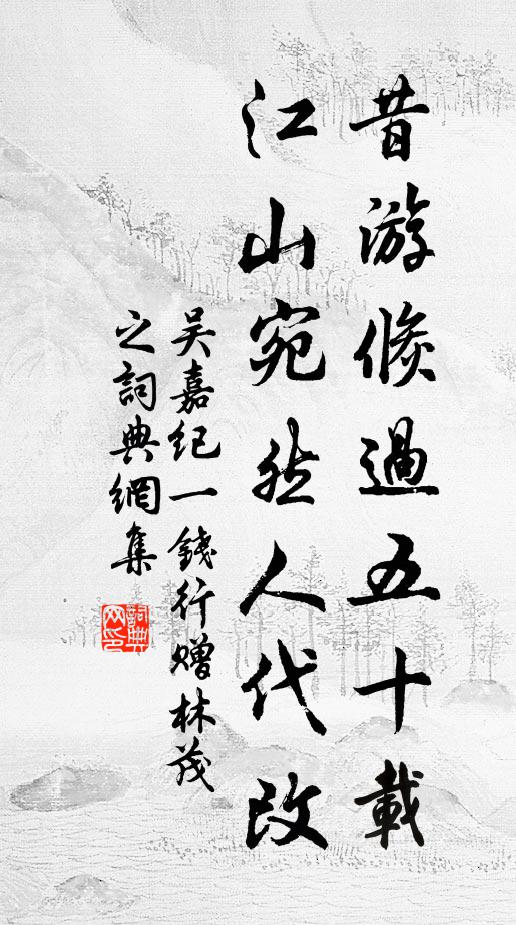 昔游倏過五十載
江山宛然人代改
吴嘉纪一錢行赠林茂
之詞典網集
詞典
网印